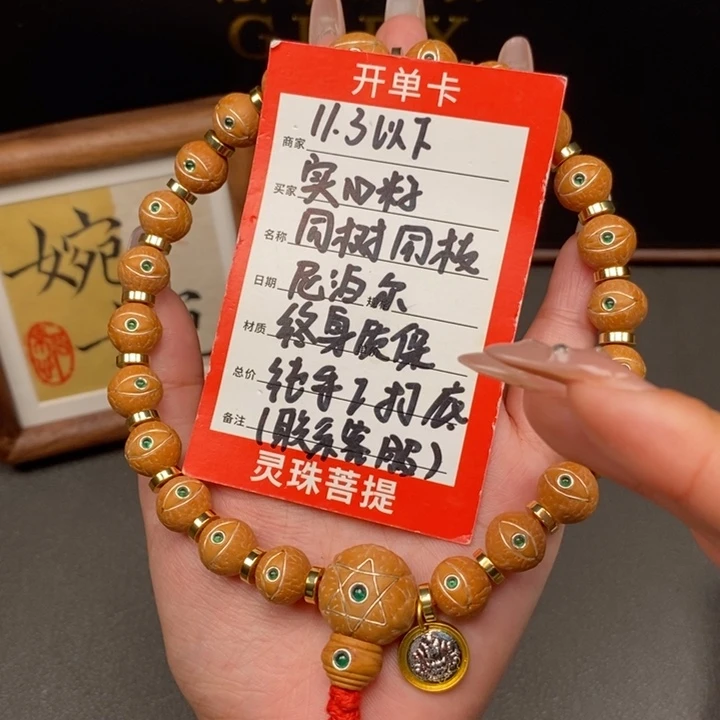 开单卡
商家 11.3以下
买家 实心籽
名称 同树同枝
日期 尼泊尔
材质 终身质保
总价 纯手工打底
备注 (联系客服)
灵珠菩提
婉